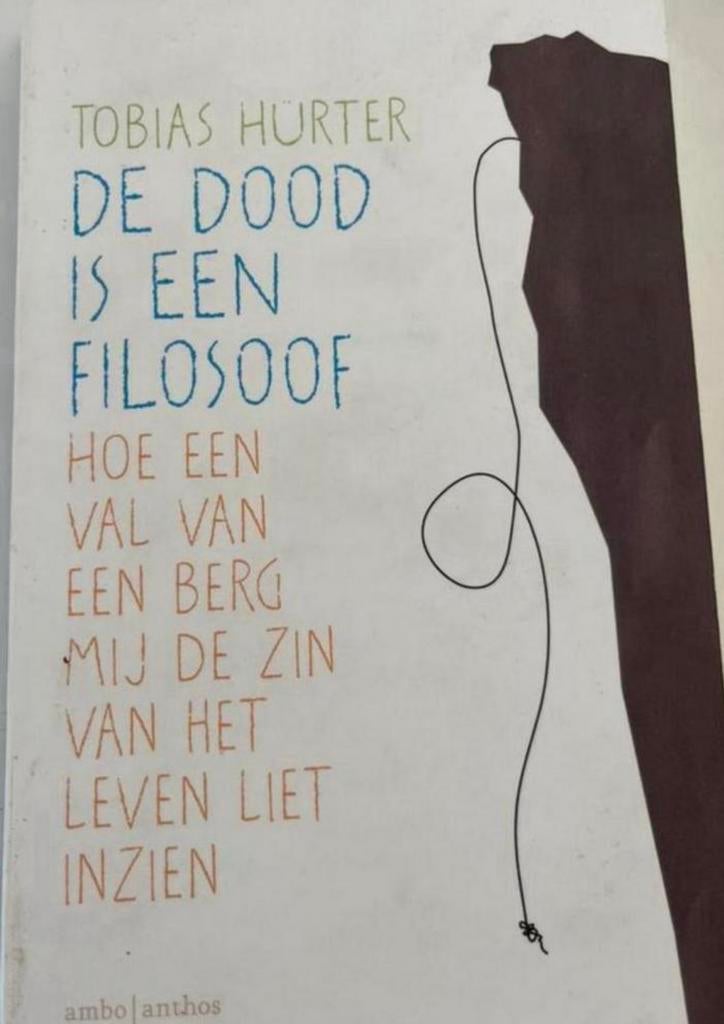 TOBIAS HÜRTER
DE DOOD
IS EEN
FILOSOOF
HOE EEN
VAL VAN
EEN BERG
MIJ DE ZIN
VAN HET
LEVEN LIET
INZIEN
ambo|anthos